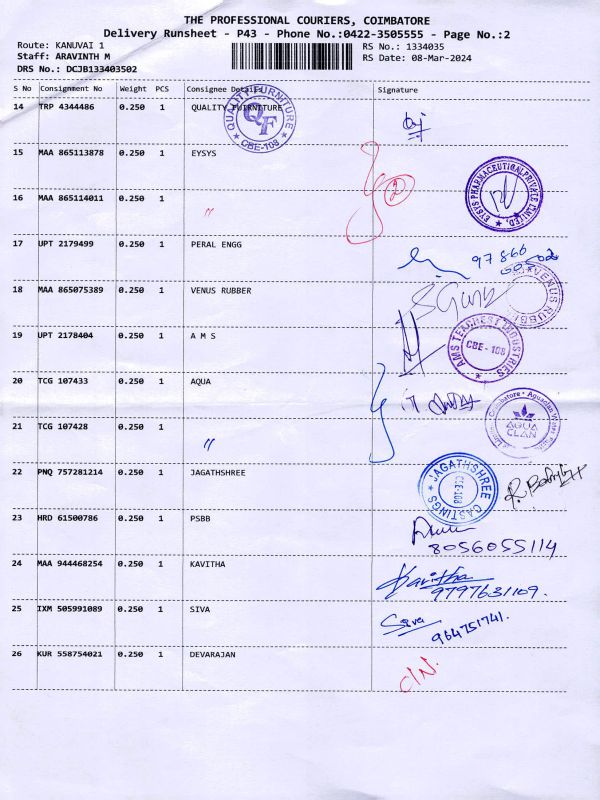 THE PROFESSIONAL COURIERS, COIMBATORE
Delivery Runsheet - P43 - Phone No.:0422-3505555 - Page No.:2
Route: KANUVAI 1
RS No.: 1334035
Staff: ARAVINTH M
RS Date: 08-Mar-2024
DRS No.: DCJB133403502
S No Consignment No Weight PCS Consignee Details Signature
14 TRP 4344486 0.250 1 QUALITY FUIRNITURE
QUALITY FURNITURE
QF
CBE-108
15 MAA 865113878 0.250 1 EYSYS
2
16 MAA 865114011 0.250 1 "
17 UPT 2179499 0.250 1 PERAL ENGG
97866
18 MAA 865075389 0.250 1 VENUS RUBBER
VENUS RUBB
19 UPT 2178404 0.250 1 A M S
AMS INDUSTRIES
CBE - 108
20 TCG 107433 0.250 1 AQUA
AQUA
CLAN
21 TCG 107428 0.250 1 "
22 PNQ 757281214 0.250 1 JAGATHSHREE
JAGATHSHREE CASTINGS
CBE-108
23 HRD 61500786 0.250 1 PSBB
8056055114
24 MAA 944468254 0.250 1 KAVITHA
Kavitha
9797631109.
25 IXM 505991089 0.250 1 SIVA
Siva
964751741.
26 KUR 558754021 0.250 1 DEVARAJAN
C/N.